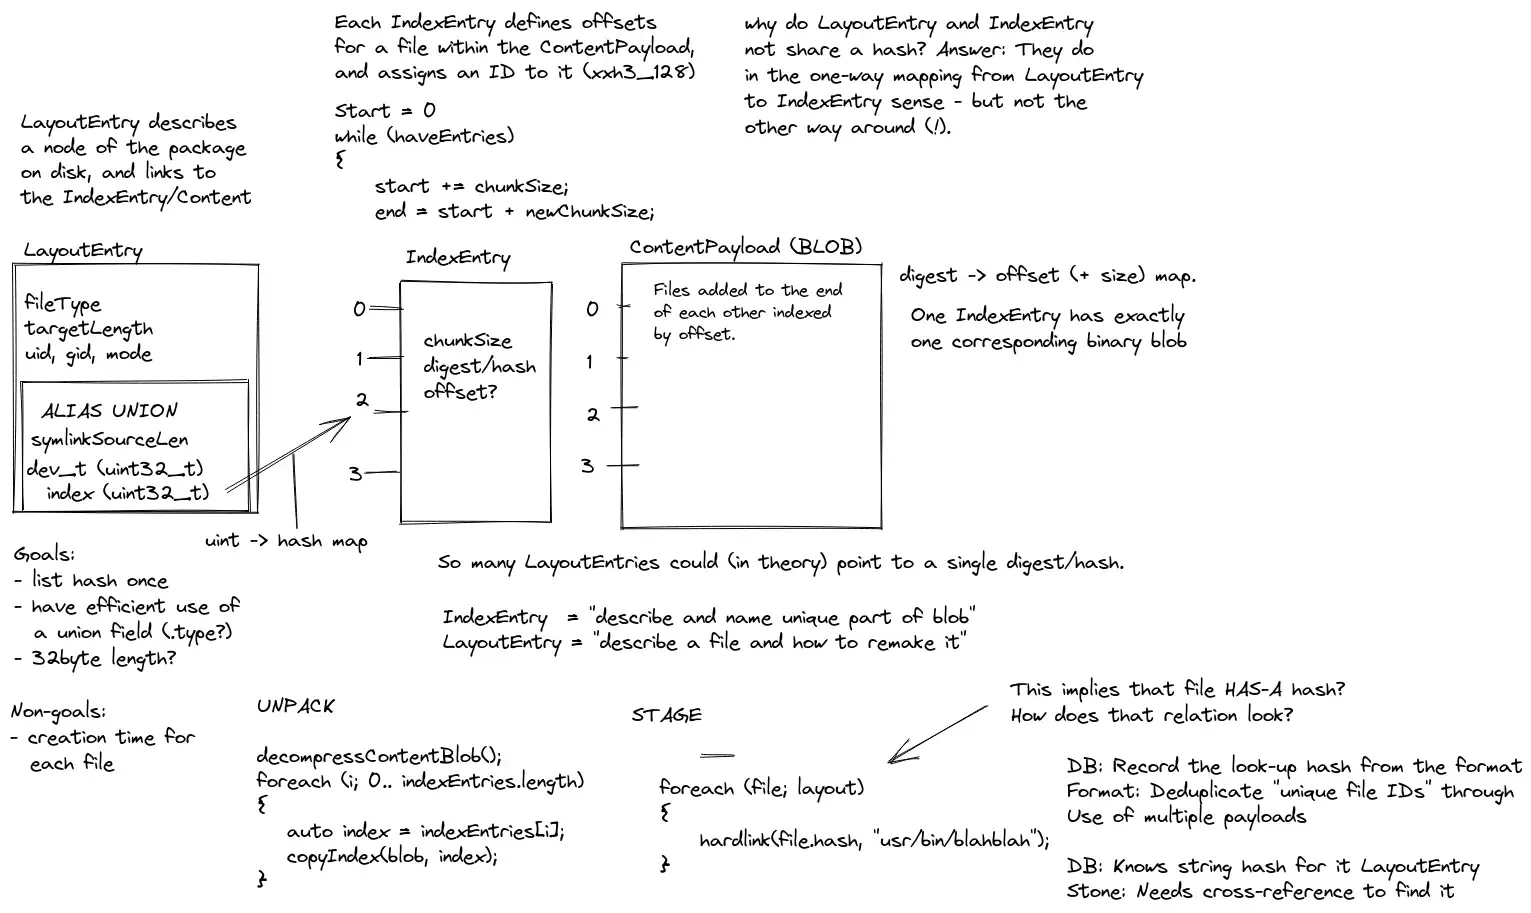 Each IndexEntry defines offsets
for a file within the ContentPayload,
and assigns an ID to it (xxh3_128)
Start = 0
while (haveEntries)
{
start += chunkSize;
end = start + newChunkSize;
why do LayoutEntry and IndexEntry
not share a hash? Answer: They do
in the one-way mapping from LayoutEntry
to IndexEntry sense - but not the
other way around (!).
LayoutEntry describes
a node of the package
on disk, and links to
the IndexEntry/Content
LayoutEntry
fileType
targetLength
uid, gid, mode
ALIAS UNION
symlinkSourceLen
dev_t (uint32_t)
index (uint32_t)
uint -> hash map
IndexEntry
0
1
2
3
chunkSize
digest/hash
offset?
ContentPayload (BLOB)
0
1
2
3
Files added to the end
of each other indexed
by offset.
digest -> offset (+ size) map.
One IndexEntry has exactly
one corresponding binary blob
Goals:
- list hash once
- have efficient use of
a union field (.type?)
- 32byte length?
Non-goals:
- creation time for
each file
So many LayoutEntries could (in theory) point to a single digest/hash.
IndexEntry = "describe and name unique part of blob"
LayoutEntry = "describe a file and how to remake it"
UNPACK
decompressContentBlob();
foreach (i; 0.. indexEntries.length)
{
auto index = indexEntries[i];
copyIndex(blob, index);
}
STAGE
foreach (file; layout)
{
hardlink(file.hash, "usr/bin/blahblah");
}
This implies that file HAS-A hash?
How does that relation look?
DB: Record the look-up hash from the format
Format: Deduplicate "unique file IDs" through
Use of multiple payloads
DB: Knows string hash for it LayoutEntry
Stone: Needs cross-reference to find it